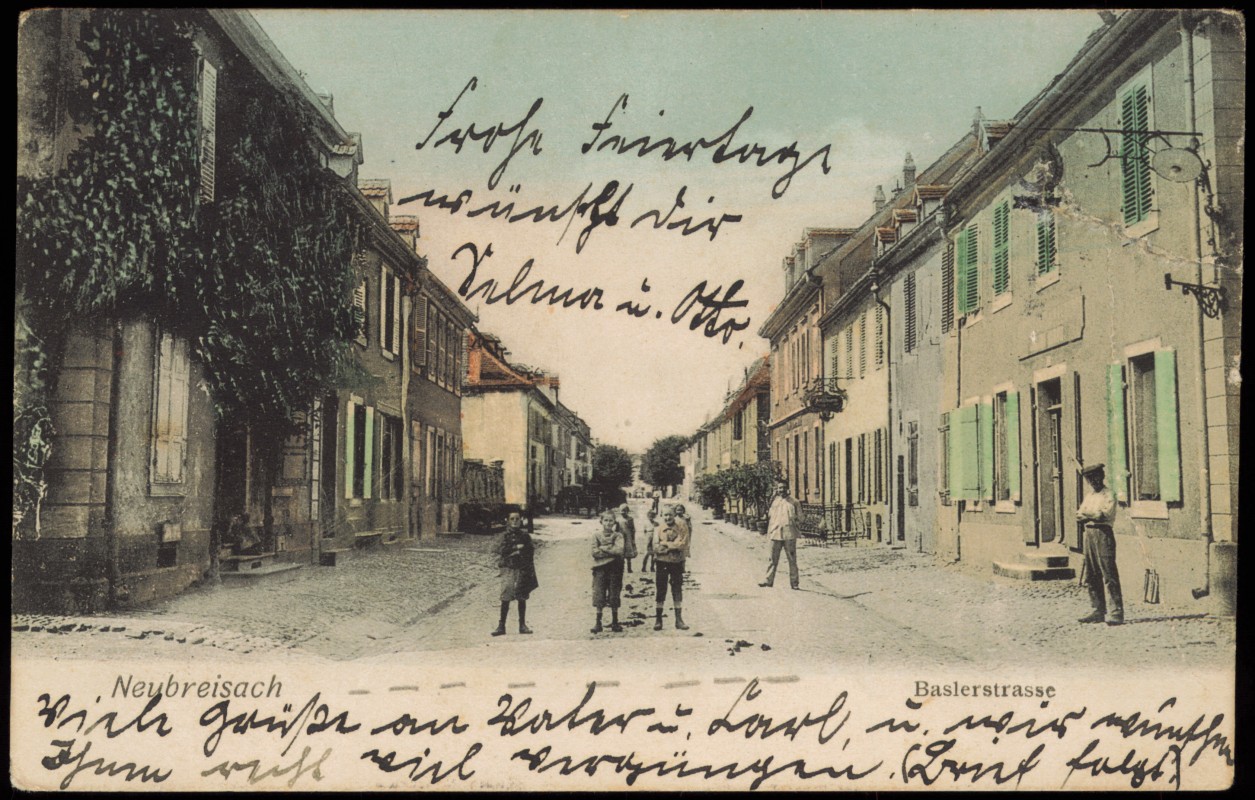 Frohe Feiertage
wünscht dir
Selma u. Otto.
Neubreisach
Baslerstrasse
Viele Grüße an Vater u. Carl, u. wir wünschen
Ihnen recht viel vergnügen. (Brief folgt)